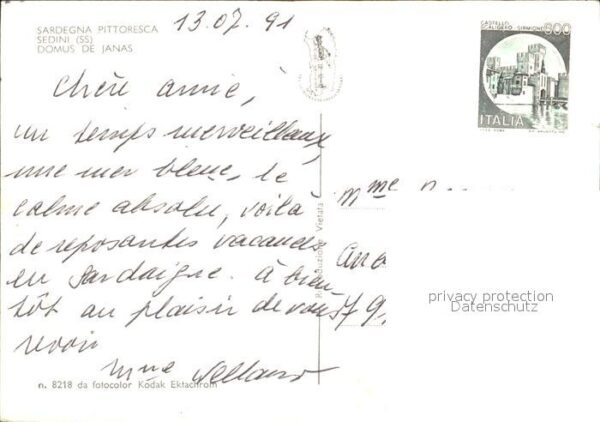 SARDEGNA PITTORESCA
SEDINI (SS)
DOMUS DE JANAS
13.07.91
CASTELLO
SCALIGERO - SIRMIONE
800
ITALIA
Chère amie,
un temps merveilleux,
une mer bleue, le
calme absolu, voilà
de reposantes vacances
en Sardaigne. à bien
tôt au plaisir de vous
revoir
Mme
Mme n.
79
Riproduzione Vietata
privacy protection
Datenschutz
n. 8218 da fotocolor Kodak Ektachrom